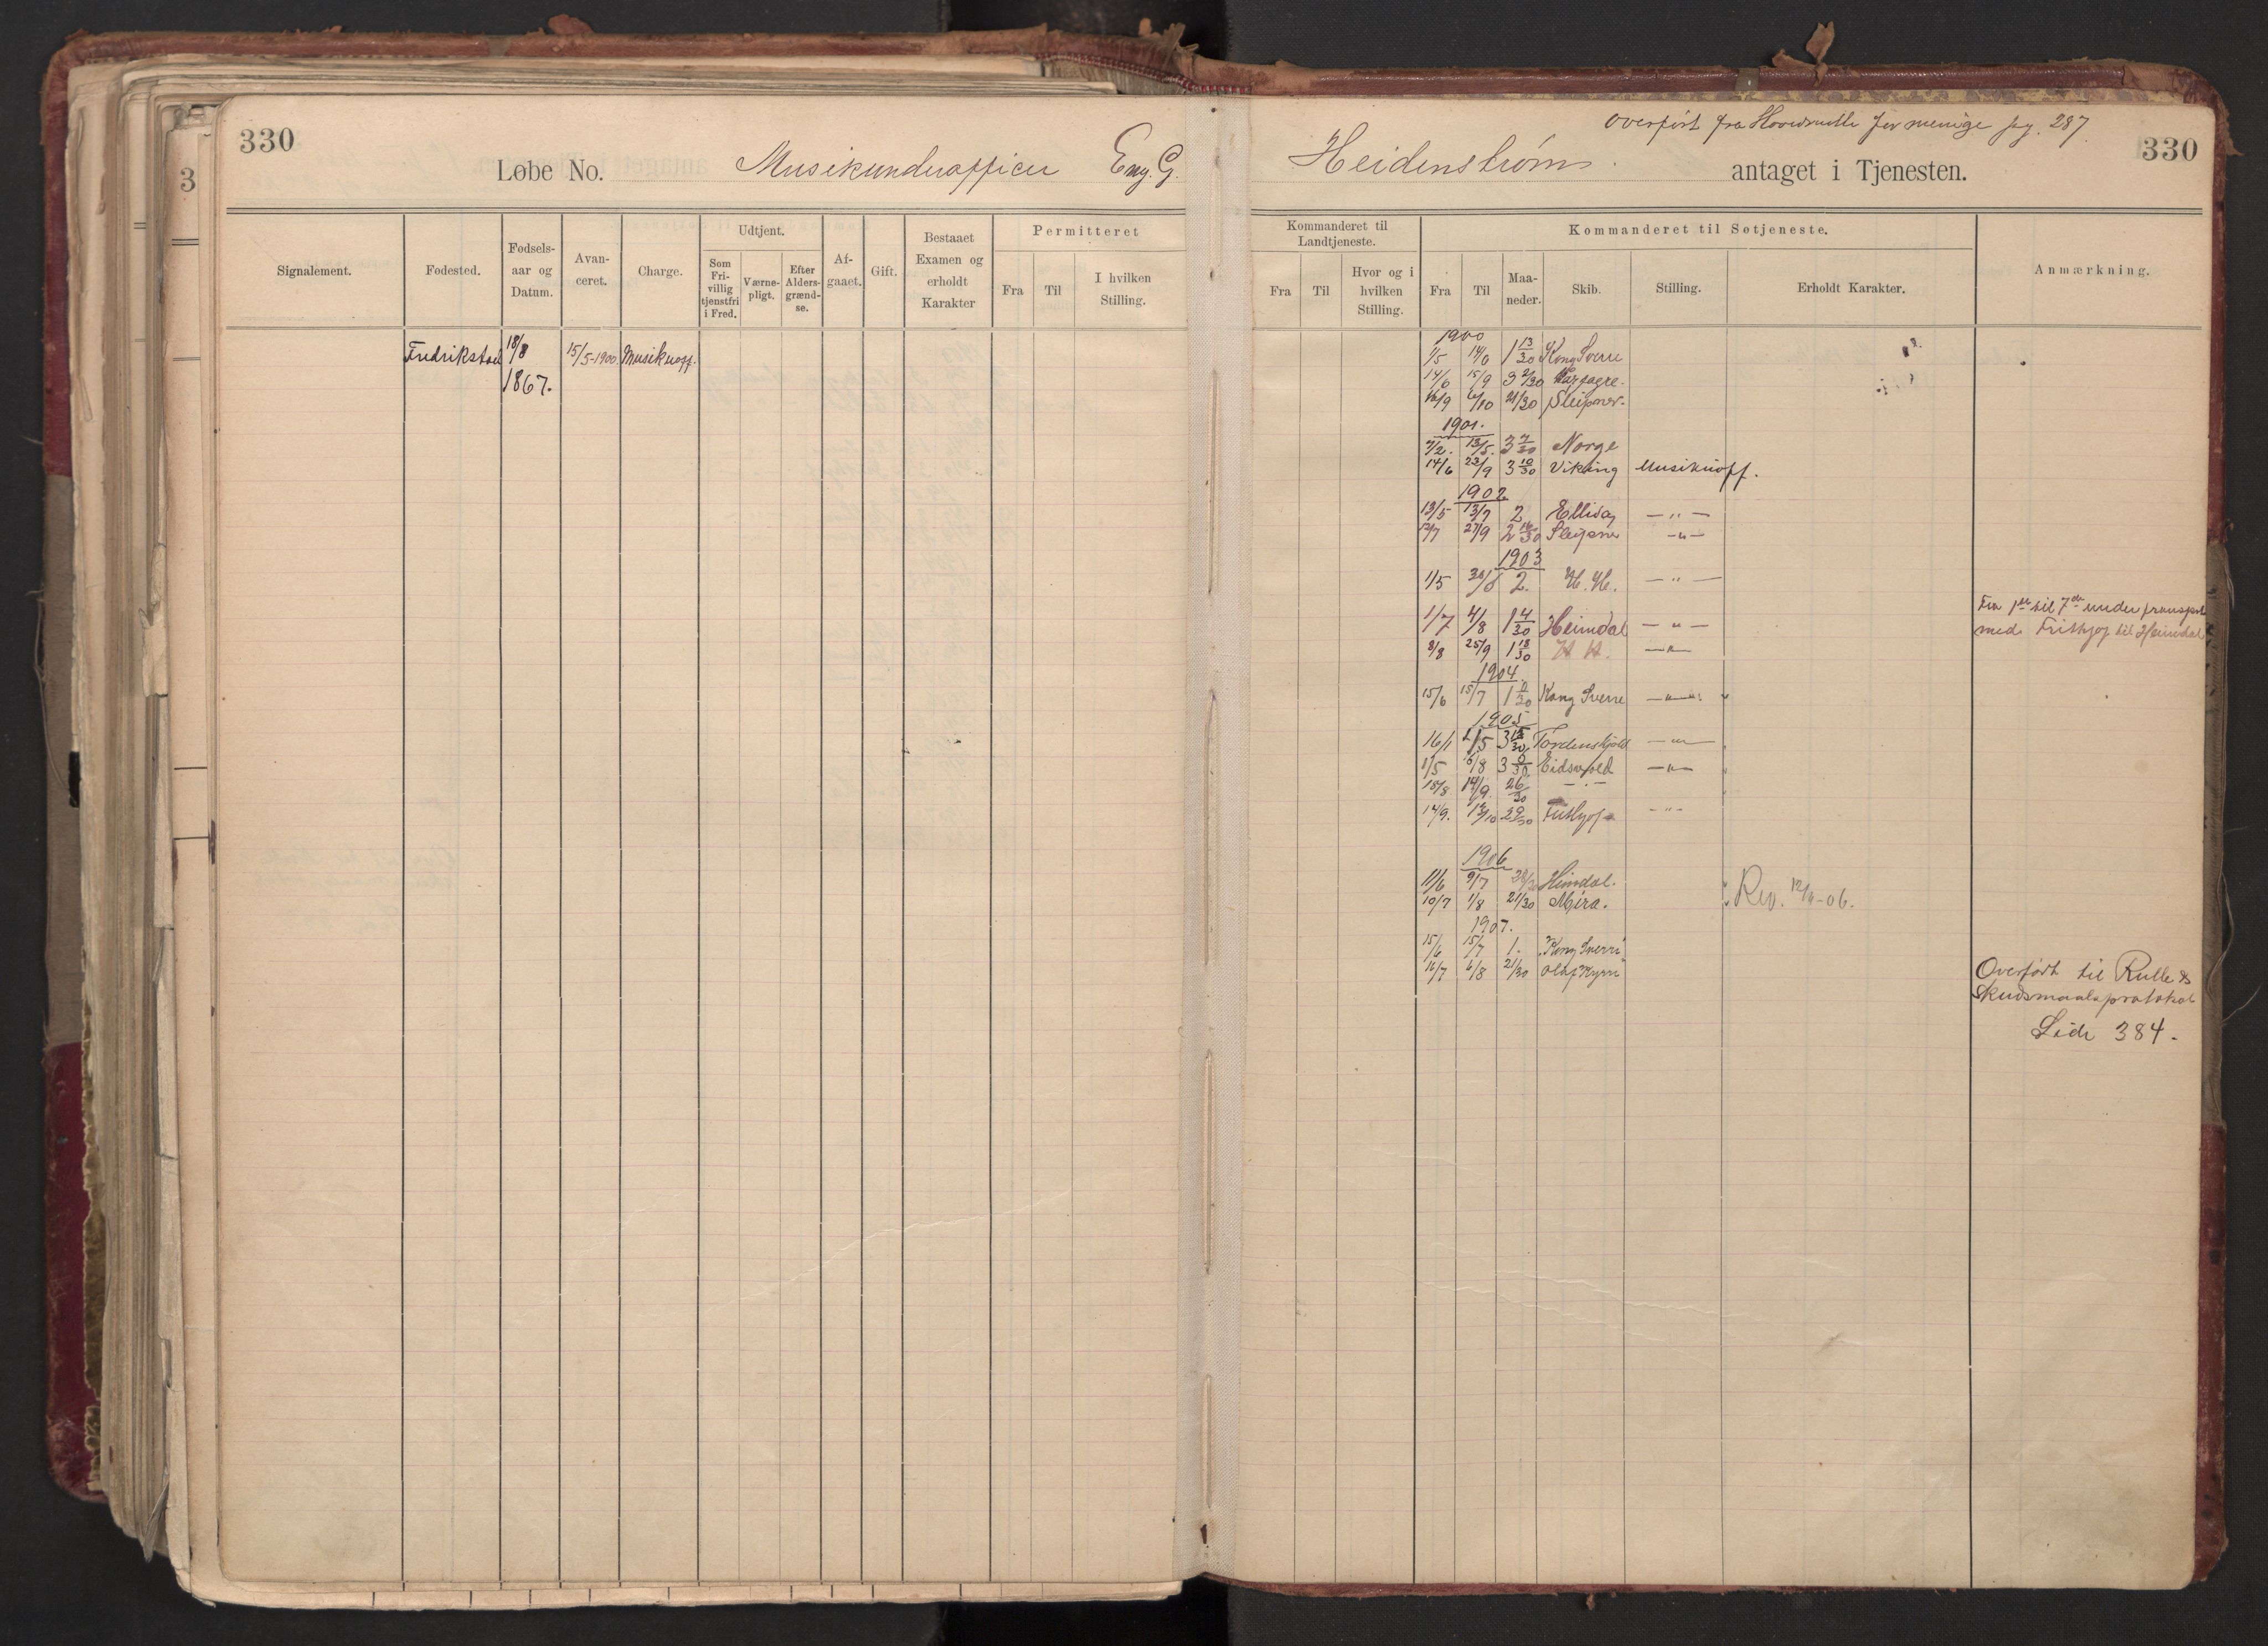 330
Løbe No. Musikunderofficer Eng. G.
Signalement.
Fødested.
Fødsels-
aar og
Datum.
Avan-
ceret.
Charge.
Udtjent.
Som
Fri-
villig
tjenstfri
i Fred.
Værne-
pligt.
Efter
Alders-
grænd-
se.
Af-
gaaet.
Gift.
Bestaaet
Examen og
erholdt
Karakter
Permitteret
Fra
Til
I hvilken
Stilling.
Fredrikstad 18/8 15/5-1900. Musikuoff.
1867.
3
overført fra Hovedrulle for menige pag. 287.
330
Heidenstrøm antaget i Tjenesten.
Kommanderet til
Landtjeneste.
Fra
Til
Hvor og i
hvilken
Stilling.
Kommanderet til Søtjeneste.
Fra
Til
Maa-
neder.
Skib.
Stilling.
Erholdt Karakter.
Anmærkning.
1900
1/5 14/6 1 13/30 Kong Sverre
14/6 15/9 3 2/30 Harfagre.
16/9 6/10 21/30 Sleipner.
1901.
7/2. 13/5. 3 7/30 Norge
14/6 23/9 3 10/30 Viking Musikuoff.
1902
13/5 13/7 2 Ellida — " —
12/7 27/9 2 16/30 Sleipner — " —
1903
1/5 30/6 2. H. H. — " —
Fra 1ste til 7de under transport
1/7 4/8 1 4/30 Heimdal — " —
med Frithjof til Heimdal
8/8 25/9 1 18/30 H H. — " —
1904.
15/6 15/7 1 0/30 Kong Sverre — " —
1905
16/1 1/5 3 15/30 Tordenskjold — " —
1/5 6/8 3 0/30 Eidsvold — " —
18/8 14/9. 26/30 — " —
14/9. 12/10 29/30 Frithjof — " —
1906
11/6 9/7 29/30 Heimdal.
10/7 1/8 21/30 Mira. Rev. 12/11-06.
1907.
15/6 15/7 1. "Kong Sverre"
16/7 6/8 21/30 Olaf Kyrre
Overført til Rulle &
Skudsmaalsprotokol
Side 384.